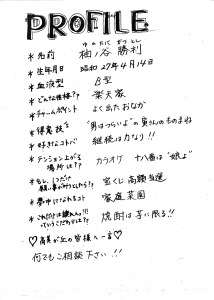 PROFILE
ゆのたに かつとし
*名前 柚ノ谷 勝利
*生年月日 昭和27年4月14日
*血液型 B型
*どんな性格?? 楽天家
*チャームポイント よく出たおなか
*得意技 "男はつらいよ"の寅さんのものまね
*好きなコトバ 継続は力なり!!
*テンション上がる場所は?? カラオケ 十八番は"娘よ"
*もし、1つだけ
願い事が叶うとしたら?? 宝くじ高額当選
*夢中になれるコト 家庭菜園
*これだけは譲れない!!!
っていうこだわりは?? 焼酎は芋に限る!!
♡高美が丘の皆様へ一言♡
何でもご相談下さい!!